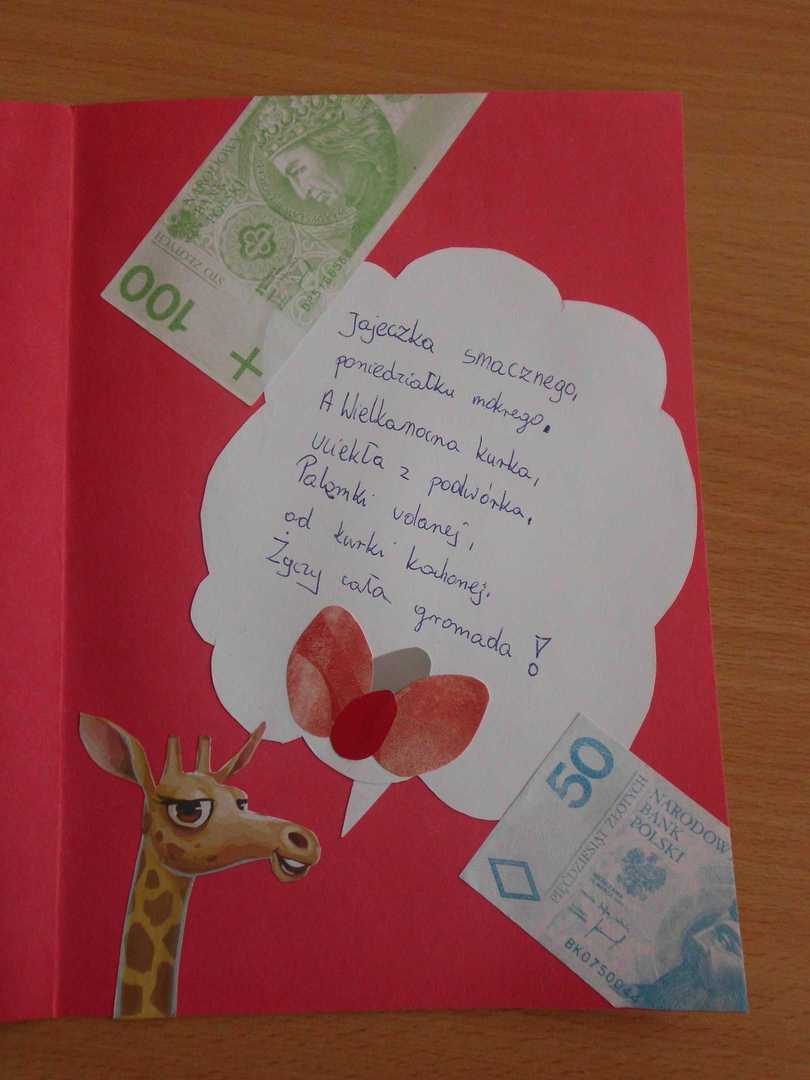 NARODOWY
BANK
POLSKI
STO ZŁOTYCH
100
Jajeczka smacznego,
poniedziałku mokrego.
A Wielkanocna kurka,
uciekła z podwórka.
Palemki udanej,
od kurki kochanej.
Życzy cała gromada!
50
PIĘĆDZIESIĄT ZŁOTYCH
NARODOW
BANK
POLSKI
BK0750944